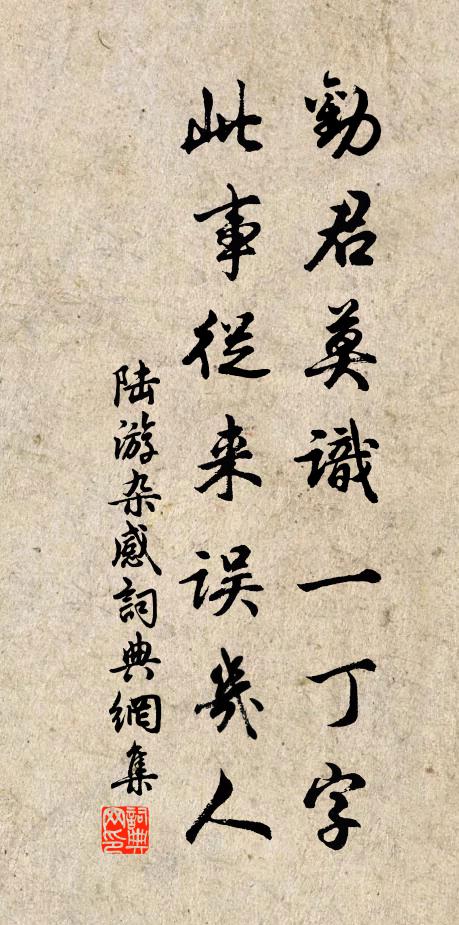 勸君莫識一丁字
此事從来误幾人
陆游杂感詞典網集
詞典网印